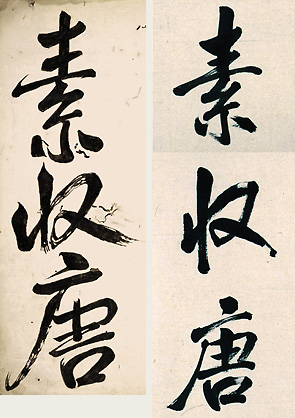 素收唐
素收唐